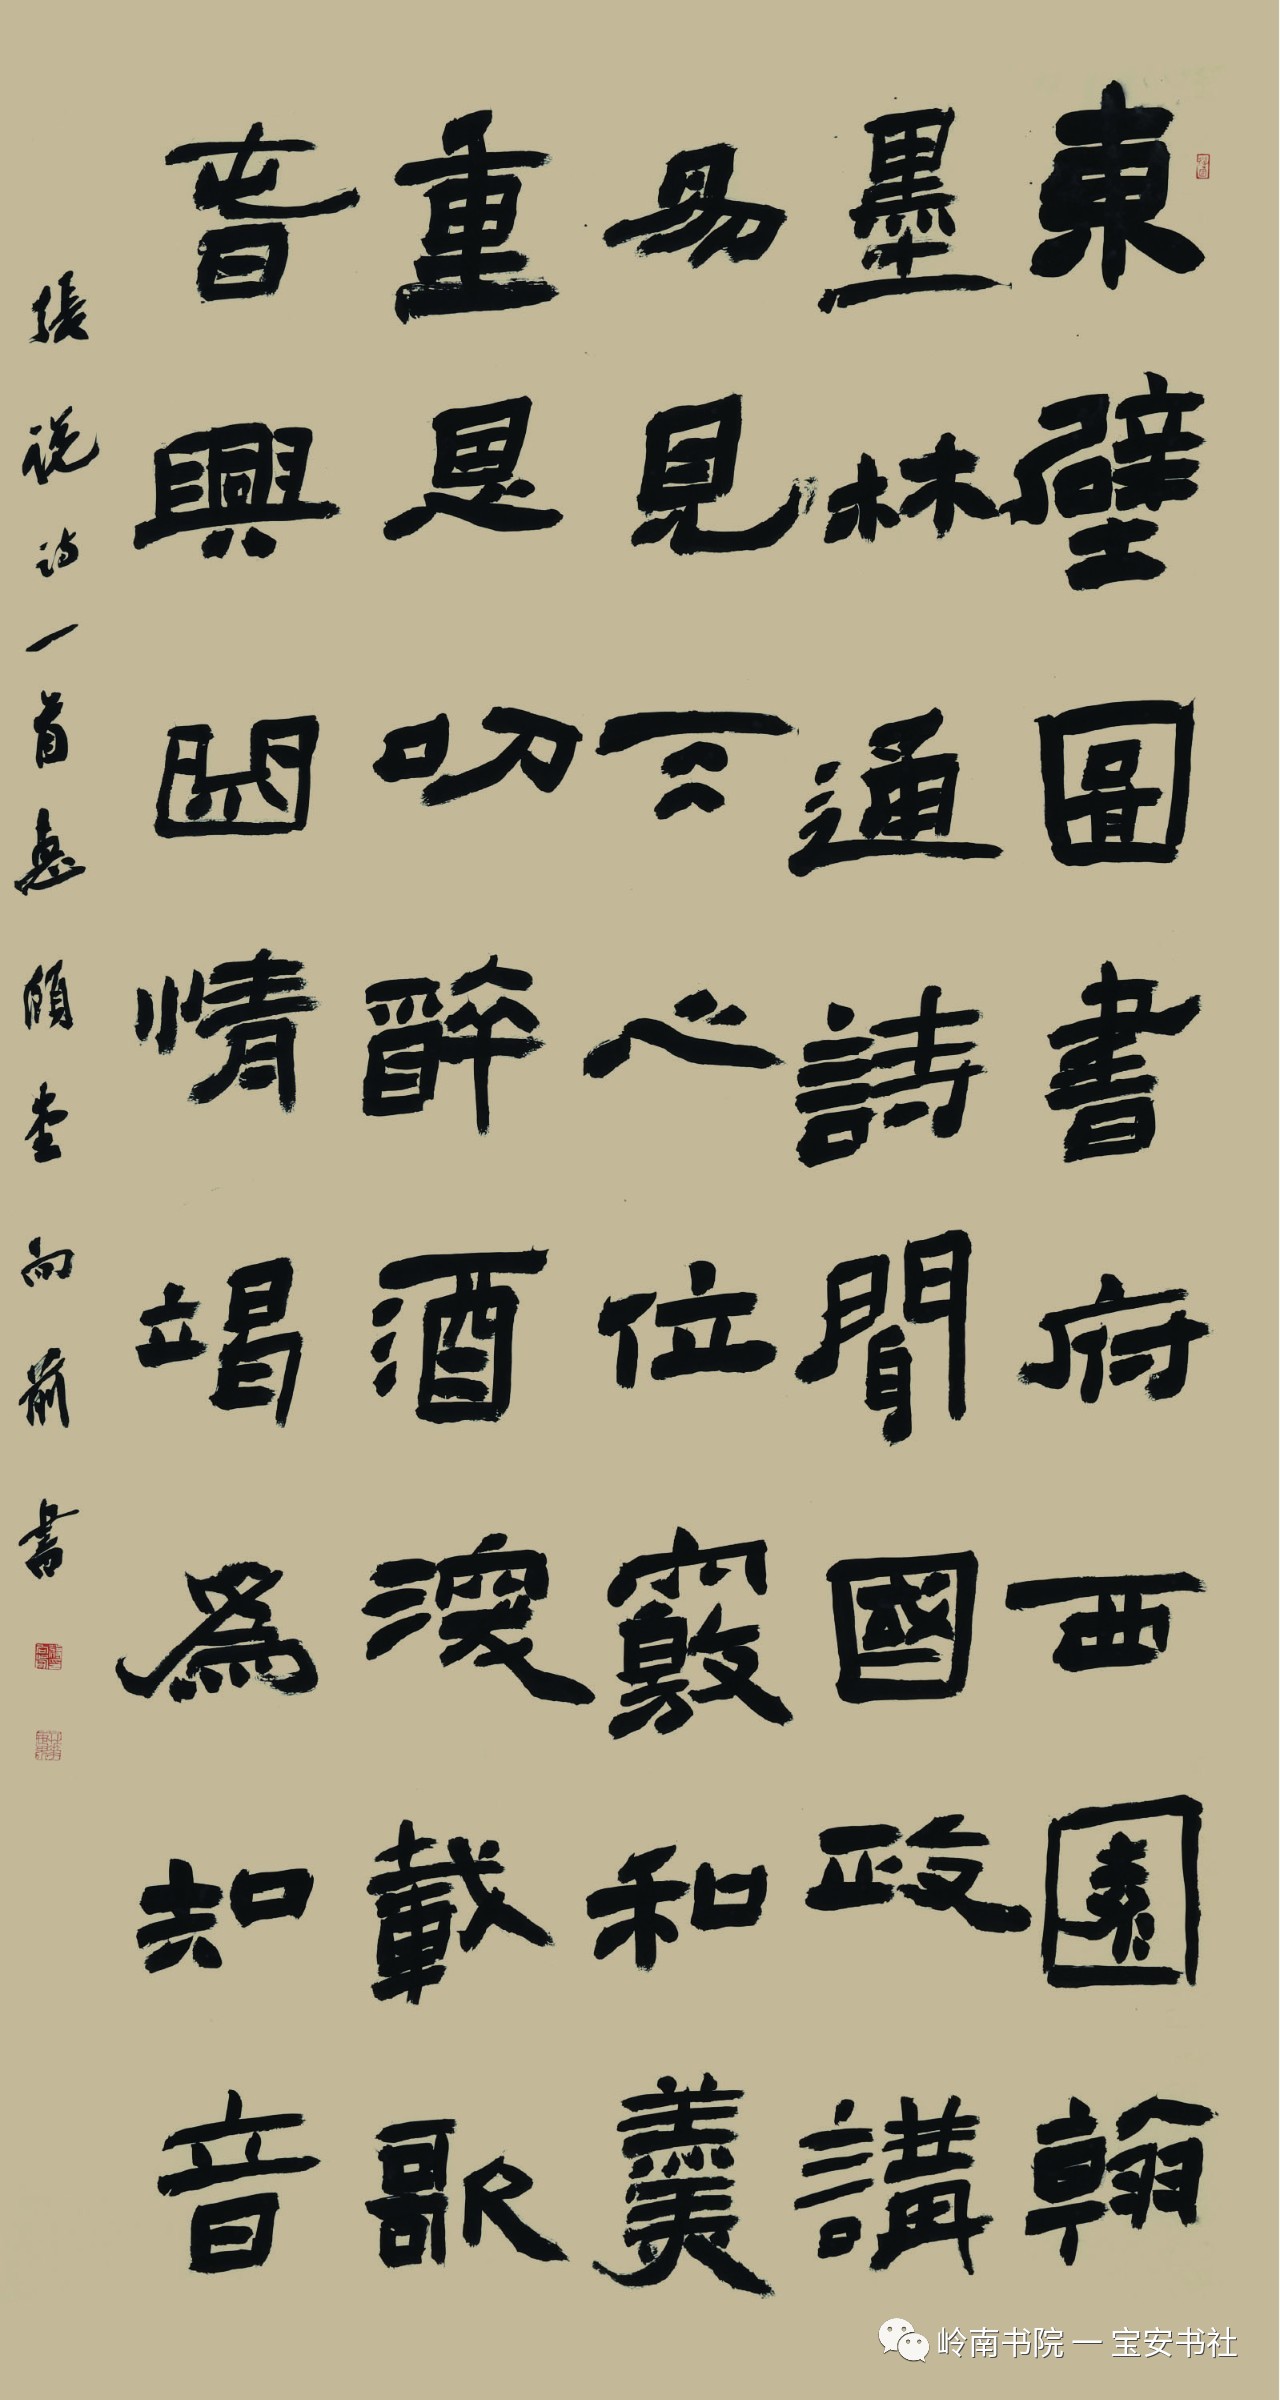 東壁圖書府西園翰
墨林通詩聞國政講
易見天心位竊和羹
重恩叨醉酒深載歌
春興曲情竭為知音
張說詩一首頤堂向前書
岭南书院一宝安书社